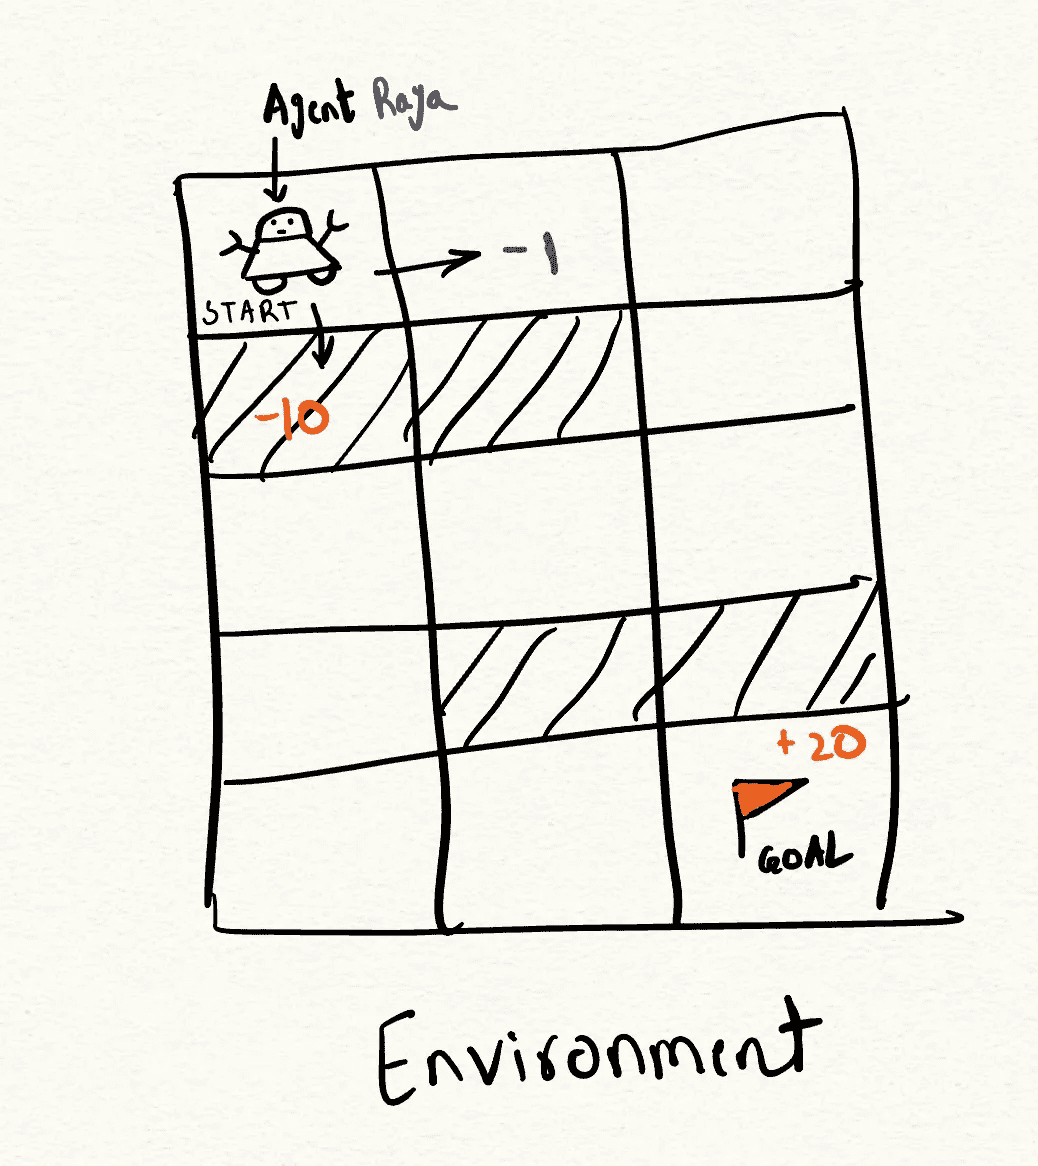 Agent Raya
-1
START
-10
+20
GOAL
Environment